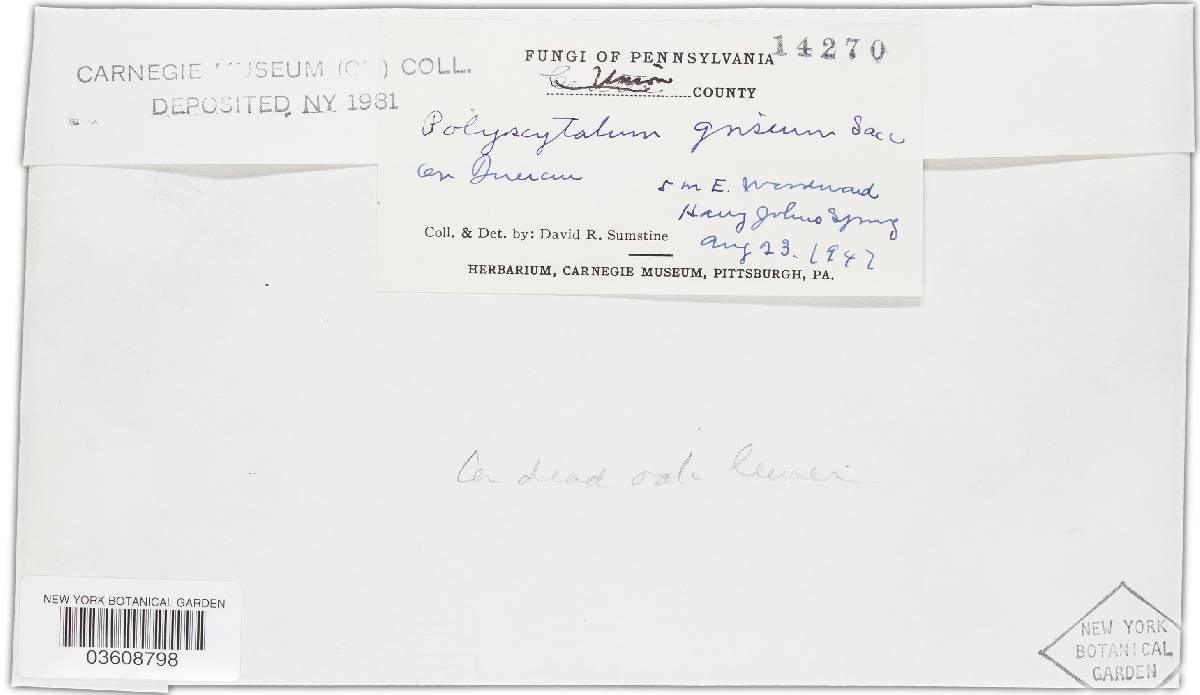 CARNEGIE MUSEUM (CM) COLL.
DEPOSITED, NY 1981
14270
FUNGI OF PENNSYLVANIA
Union COUNTY
Polyscytalum griseum Sacc
on Quercus
5 m E. Woodward
Harry Johns Spring
Aug 23. 1947
Coll. & Det. by: David R. Sumstine
HERBARIUM, CARNEGIE MUSEUM, PITTSBURGH, PA.
On dead oak leaves
NEW YORK BOTANICAL GARDEN
03608798
NEW YORK
BOTANICAL
GARDEN